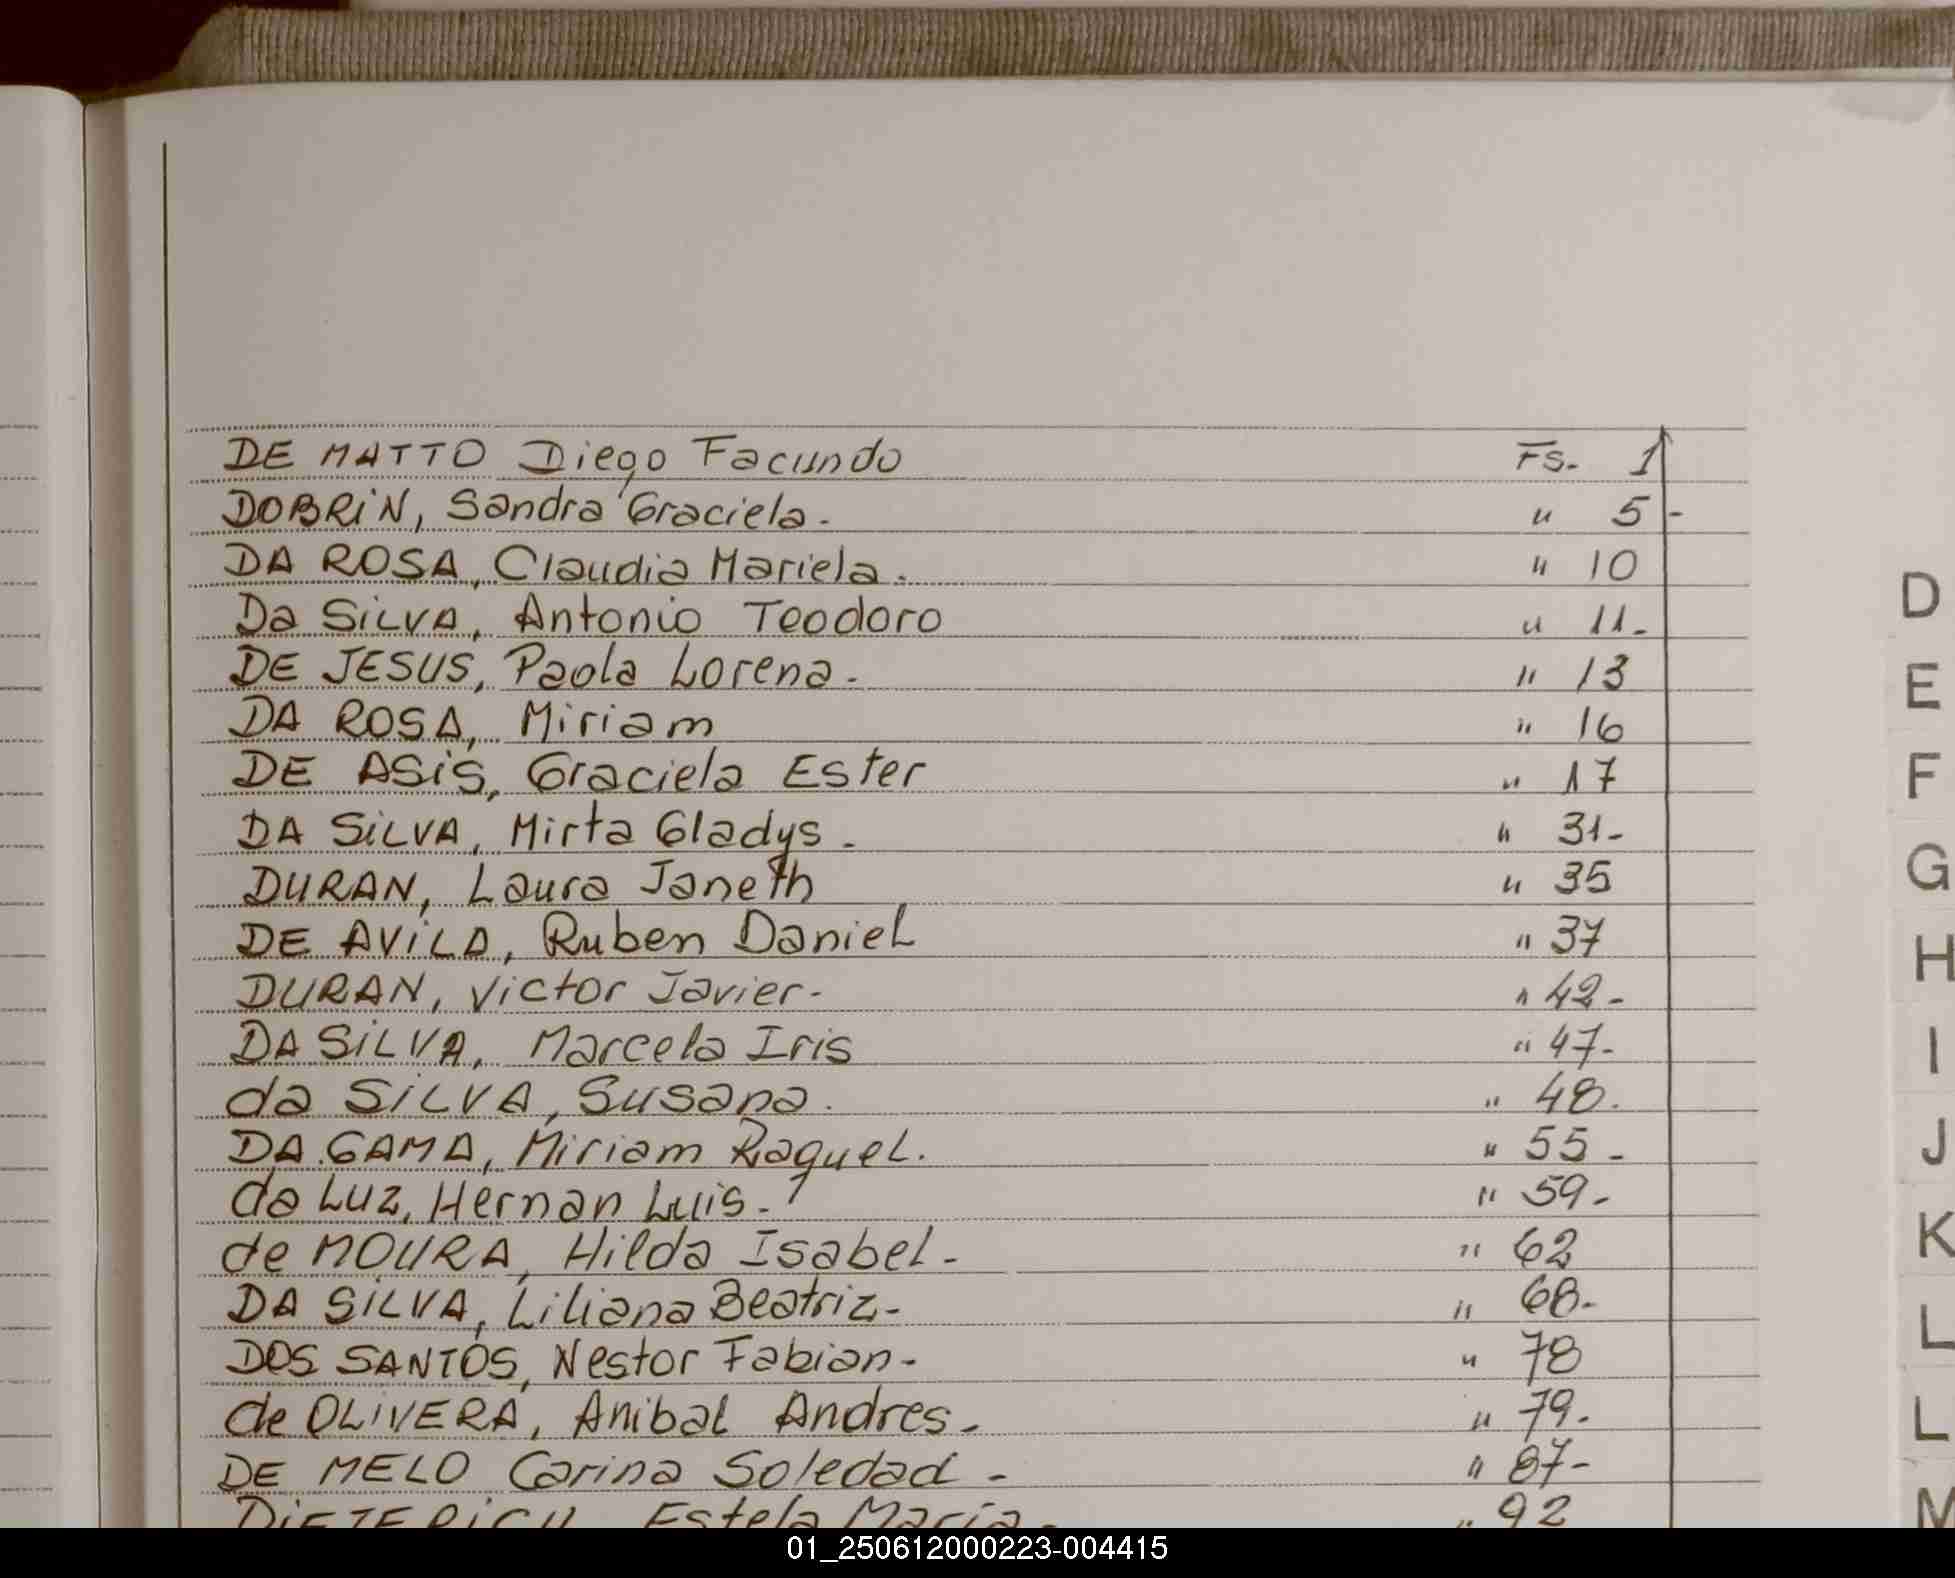 DE MATTO Diego Facundo Fs. 1
DOBRiN, Sandra Graciela. " 5-
DA ROSA, Claudia Mariela. " 10
Da SiLVA, Antonio Teodoro " 11-
DE JESUS, Paola Lorena. " 13
DA ROSA, Miriam " 16
DE ASiS, Graciela Ester " 17
DA SiLVA, Mirta Gladys. " 31-
DURAN, Laura Janeth " 35
DE AViLA, Ruben DanieL " 37
DURAN, Victor Javier- " 42-
DA SiLVA, Marcela Iris " 47-
da SiLVA, Susana. " 48.
DA GAMA, Miriam RaqueL. " 55-
da LUZ, Hernan Luis. " 59-
de MOURA, Hilda Isabel- " 62
DA SiLVA, Liliana Beatriz- " 68-
DOS SANTOS, Nestor Fabian- " 78
de OLIVERA, Anibal Andres. " 79.
DE MELO Carina Soledad - " 87-
DiETERiCH Estela Maria- " 92
D
E
F
G
H
I
J
K
L
L
M
01_250612000223-004415